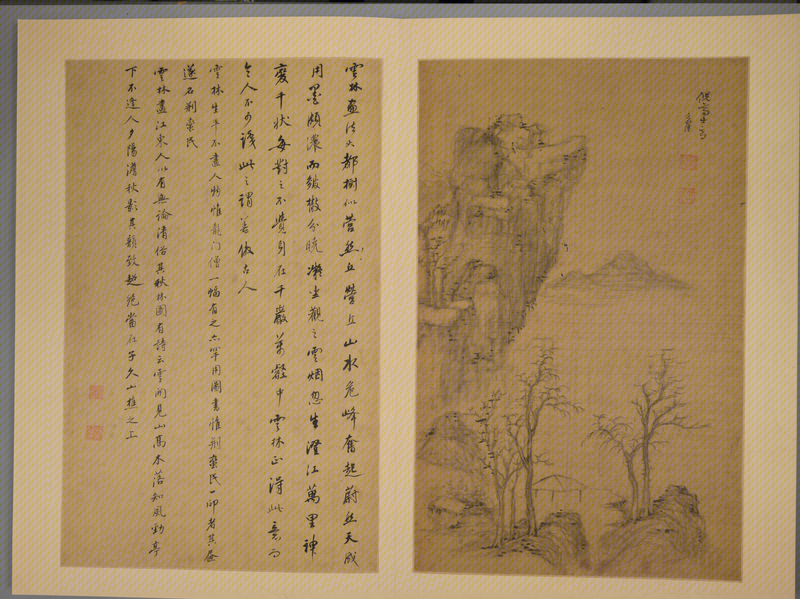 雲林畫法大都樹似營然丘營丘山水危峰奮起蔚然天成
用墨頗濃而皴散分曉凝坐觀之雲烟忽生澄江萬里神
變千狀每對之不覺身在千巖萬壑中雲林正得此意而
令人不可識此之謂善倣古人
雲林生平不畫人物惟龍門僧一幅有之亦罕用圖書惟荆蠻民一印者其畫
遂名荆蠻民
雲林畫江東人以有無論清俗其秋林圖有詩云雲開見山高木落知風勁亭
下不逢人夕陽澹秋影其韻致超絕當在子久山樵之上